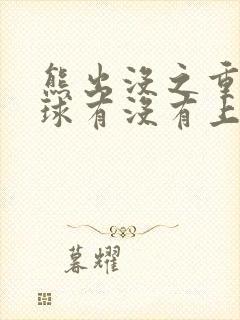 熊出没之重
球有没有上
暮耀